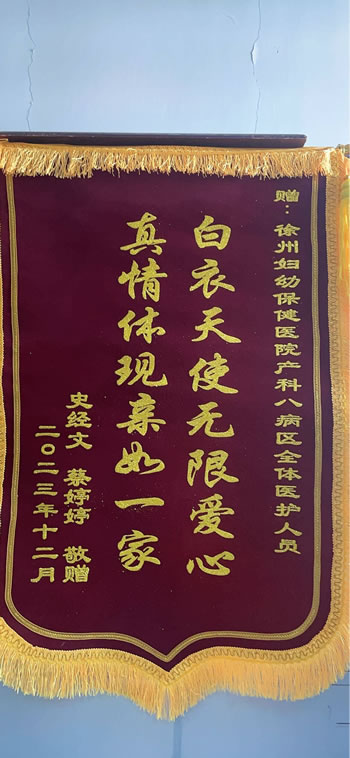 赠：徐州妇幼保健医院产科八病区全体医护人员
白衣天使无限爱心
真情体现亲如一家
史经文 蔡婷婷 敬赠
二〇二三年十二月